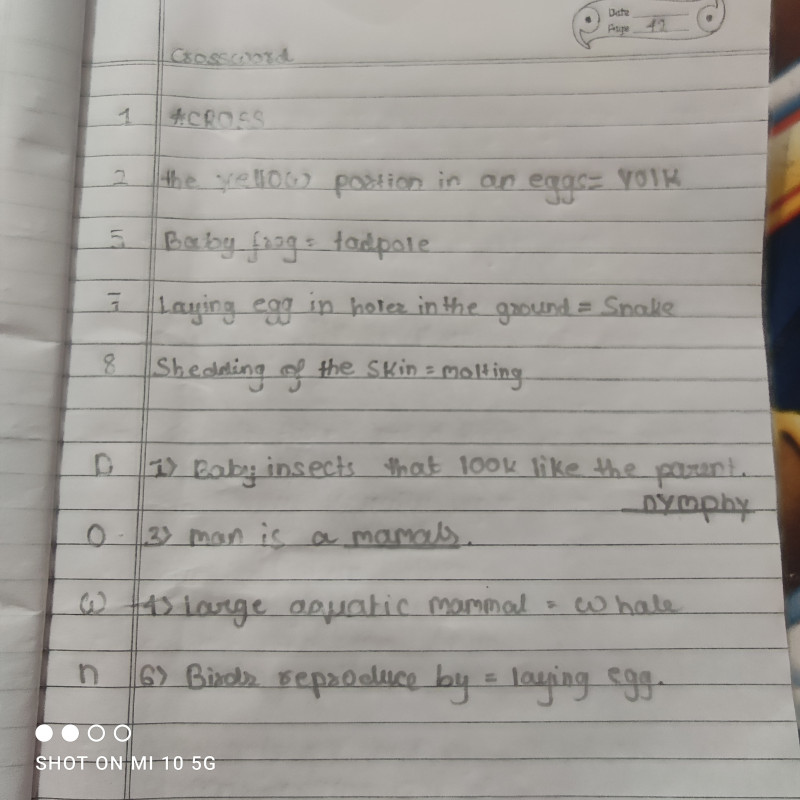 Date
Page 42
Crossword
1 ACROSS
2 the yellow portion in an eggs= YOlK
5 Baby frog = tadpole
7 Laying egg in holes in the ground = Snake
8 Shedding of the Skin = molting
D 1) Baby insects that look like the parent.
nymphy
O 3) man is a mamals.
W 4) large aquatic mammal = whale
n 6) Birds reproduce by = laying egg.
SHOT ON MI 10 5G